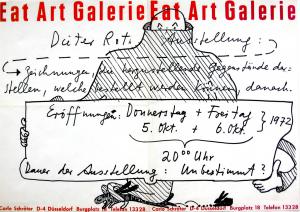 Eat Art Galerie Eat Art Galerie
Dieter Rot. Ausstellung:
→ Zeichnungen, die herzustellende Gegenstände dar-
stellen, welche bestellt werden können, danach.
Eröffnungen: Donnerstag + Freitag
5. Okt. + 6. Okt. } 1972
20⁰⁰ Uhr
Dauer der Ausstellung: Unbestimmt?
Carlo Schröter D-4 Düsseldorf Burgplatz 18 Telefon 13328 Carlo Schröter D-4 Düsseldorf Burgplatz 18 Telefon 13328